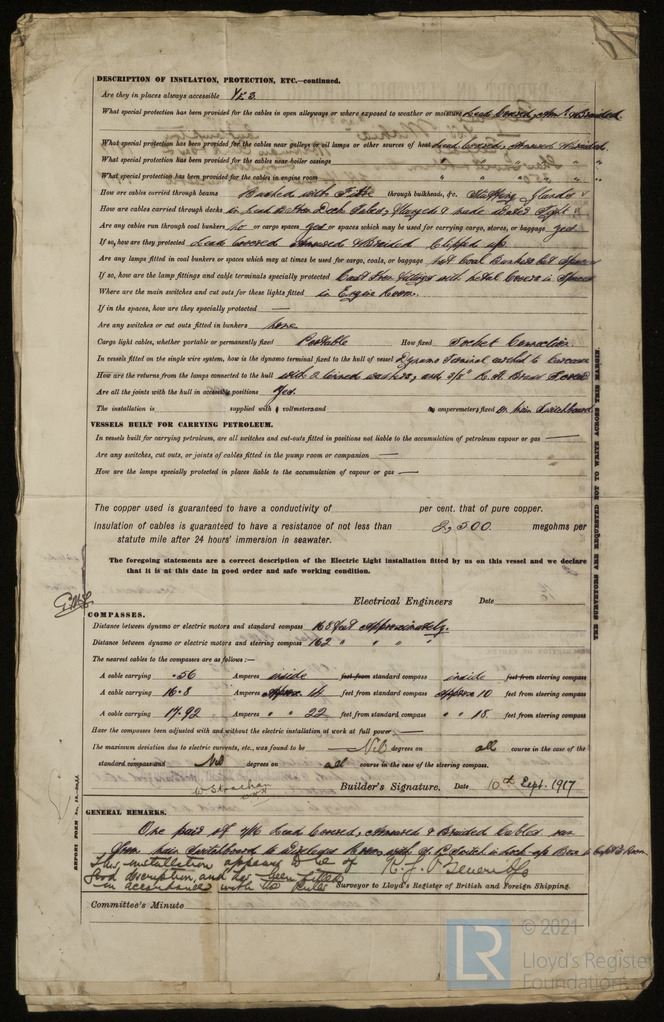 DESCRIPTION OF INSULATION, PROTECTION, ETC.—continued.
Are they in places always accessible Yes.
What special protection has been provided for the cables in open alleyways or where exposed to weather or moisture Lead Covered, Arm'd & Braided
What special protection has been provided for the cables near galleys or oil lamps or other sources of heat Lead Covered, Armoured & Braided
What special protection has been provided for the cables near boiler casings " " "
What special protection has been provided for the cables in engine room " " " "
How are cables carried through beams Bushed with Fibre through bulkheads, &c. Stuffing Glands
How are cables carried through decks In Lead & Iron Deck Tubes, Flanged & made Water Tight
Are any cables run through coal bunkers No or cargo spaces yes or spaces which may be used for carrying cargo, stores, or baggage yes.
If so, how are they protected Lead Covered Armoured & Braided Clipped up.
Are any lamps fitted in coal bunkers or spaces which may at times be used for cargo, coals, or baggage Not Coal Bunkers but Spaces
If so, how are the lamp fittings and cable terminals specially protected Cast Iron fittings with metal Covers in Spaces
Where are the main switches and cut outs for these lights fitted in Engine Room.
If in the spaces, how are they specially protected —
Are any switches or cut outs fitted in bunkers None
Cargo light cables, whether portable or permanently fixed Portable How fixed Socket Connection.
In vessels fitted on the single wire system, how is the dynamo terminal fixed to the hull of vessel Dynamo Terminal
How are the returns from the lamps connected to the hull with 2 tinned washers, and 3/8" R. H. Brass Screws
Are all the joints with the hull in accessible positions Yes.
The installation is supplied with voltmeters and amperemeters fixed on Main Switchboard
VESSELS BUILT FOR CARRYING PETROLEUM.
In vessels built for carrying petroleum, are all switches and cut-outs fitted in positions not liable to the accumulation of petroleum vapour or gas —
Are any switches, cut outs, or joints of cables fitted in the pump room or companion —
How are the lamps specially protected in places liable to the accumulation of vapour or gas —
The copper used is guaranteed to have a conductivity of per cent. that of pure copper.
Insulation of cables is guaranteed to have a resistance of not less than 2,500 megohms per
statute mile after 24 hours' immersion in seawater.
The foregoing statements are a correct description of the Electric Light installation fitted by us on this vessel and we declare
that it is at this date in good order and safe working condition.
Electrical Engineers Date
COMPASSES.
Distance between dynamo or electric motors and standard compass 168 feet Approximately.
Distance between dynamo or electric motors and steering compass 162 " " "
The nearest cables to the compasses are as follows:—
A cable carrying .56 Amperes inside feet from standard compass inside feet from steering compass
A cable carrying 16.8 Amperes Approx 14 feet from standard compass Approx 10 feet from steering compass
A cable carrying 17.92 Amperes " " 22 feet from standard compass " " 18 feet from steering compass
Have the compasses been adjusted with and without the electric installation at work at full power —
The maximum deviation due to electric currents, etc., was found to be Nil degrees on all course in the case of the
standard compass and Nil degrees on all course in the case of the steering compass.
Builder's Signature. Date 10th Sept. 1917
GENERAL REMARKS.
One pair of Lead Covered, Armoured & Braided Cables run
from main Switchboard to Wireless Room, with Switch in Lock-up Box in Wireless Room
This installation appears to be of
good description, and has been fitted
in accordance with the Rules
Surveyor to Lloyd's Register of British and Foreign Shipping.
Committee's Minute
THE SURVEYORS ARE REQUESTED NOT TO WRITE ACROSS THIS MARGIN.
© 2021
LR
Lloyd's Register
Foundation